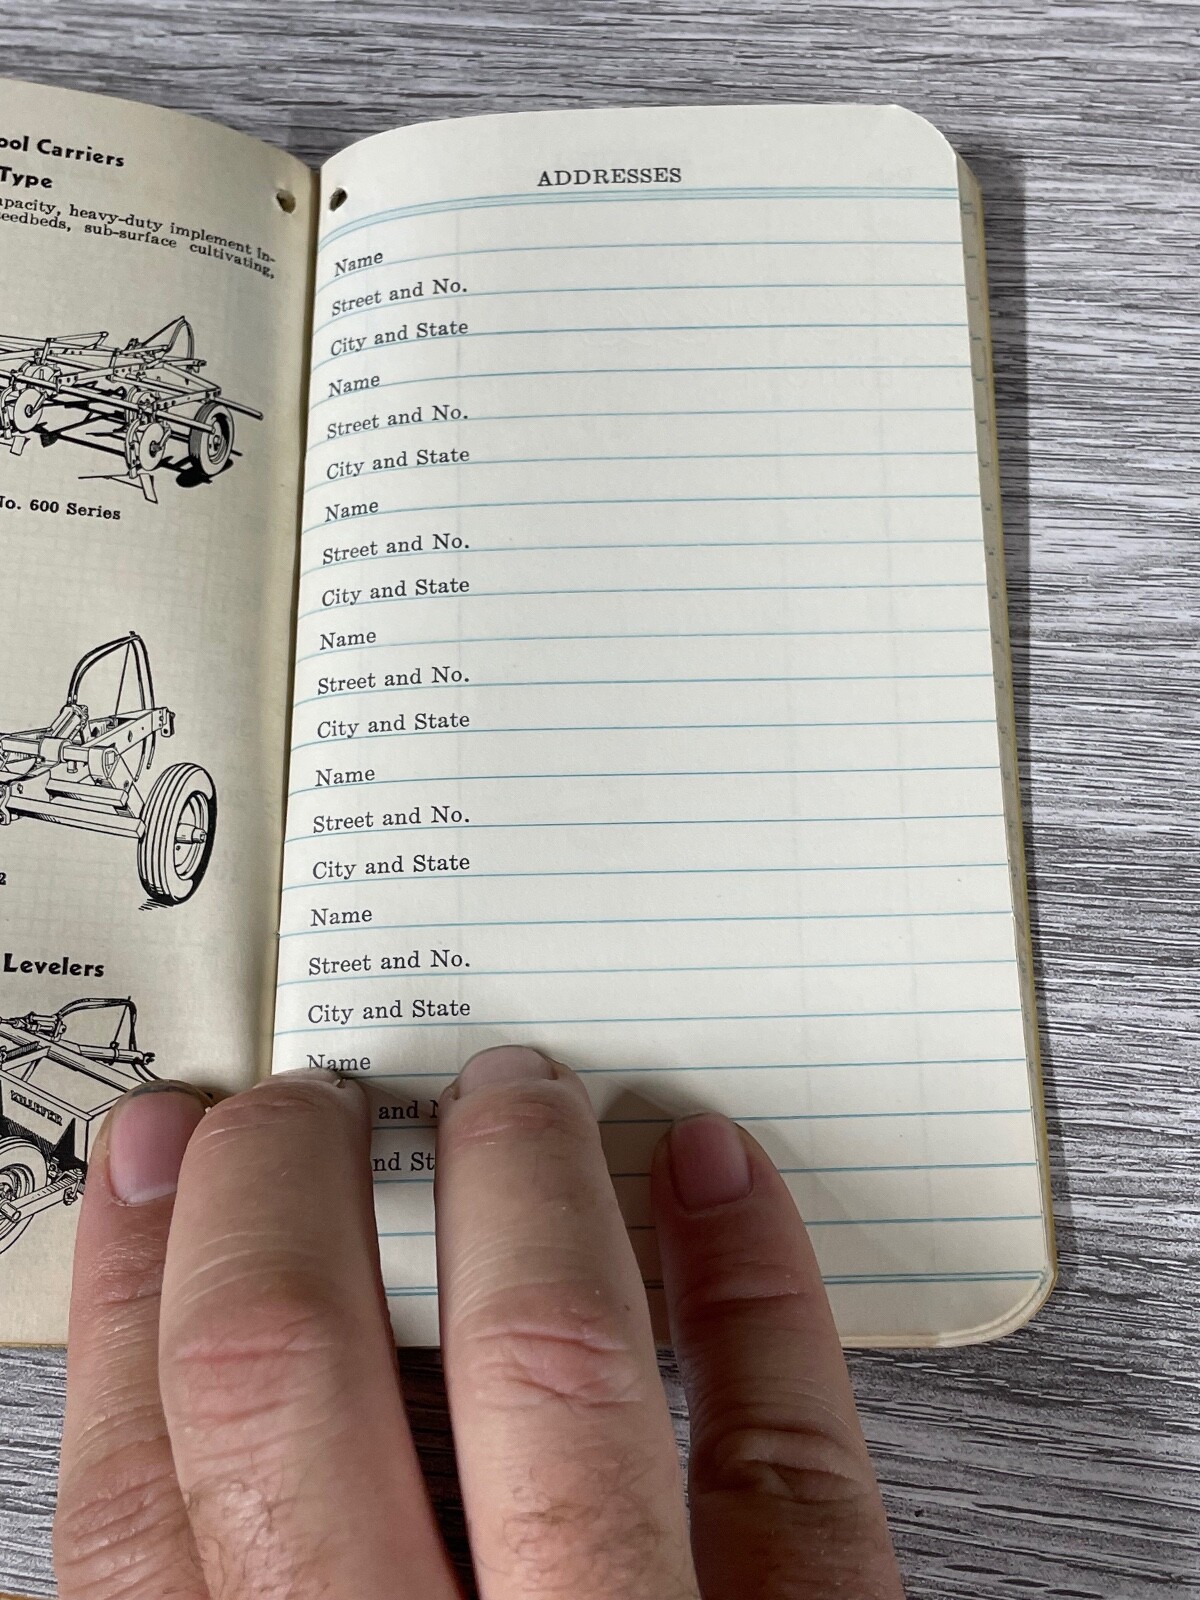 ool Carriers
Type
apacity, heavy-duty implement in-
eedbeds, sub-surface cultivating,
No. 600 Series
2
Levelers
KILLEFER
ADDRESSES
Name
Street and No.
City and State
Name
Street and No.
City and State
Name
Street and No.
City and State
Name
Street and No.
City and State
Name
Street and No.
City and State
Name
Street and No.
City and State
Name
and N
nd St